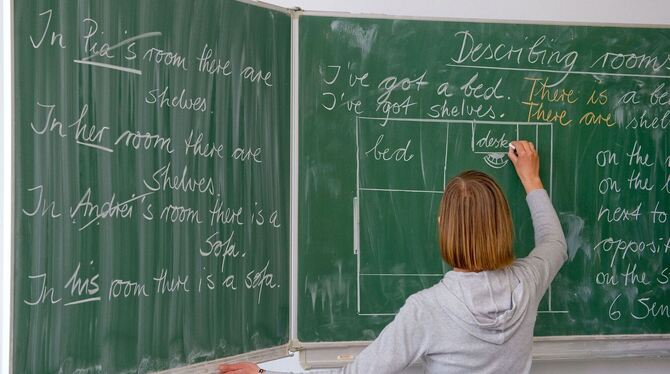 In Pia's room there are
shelves.
In her room there are
Shelves.
In Andrei's room there is a
Sofa.
In his room there is a sofa.
Describing rooms
I've got a bed. There is a be
I've got shelves. There are shel
bed
desk
on the
on the
next to
opposit
on the
6 Sen